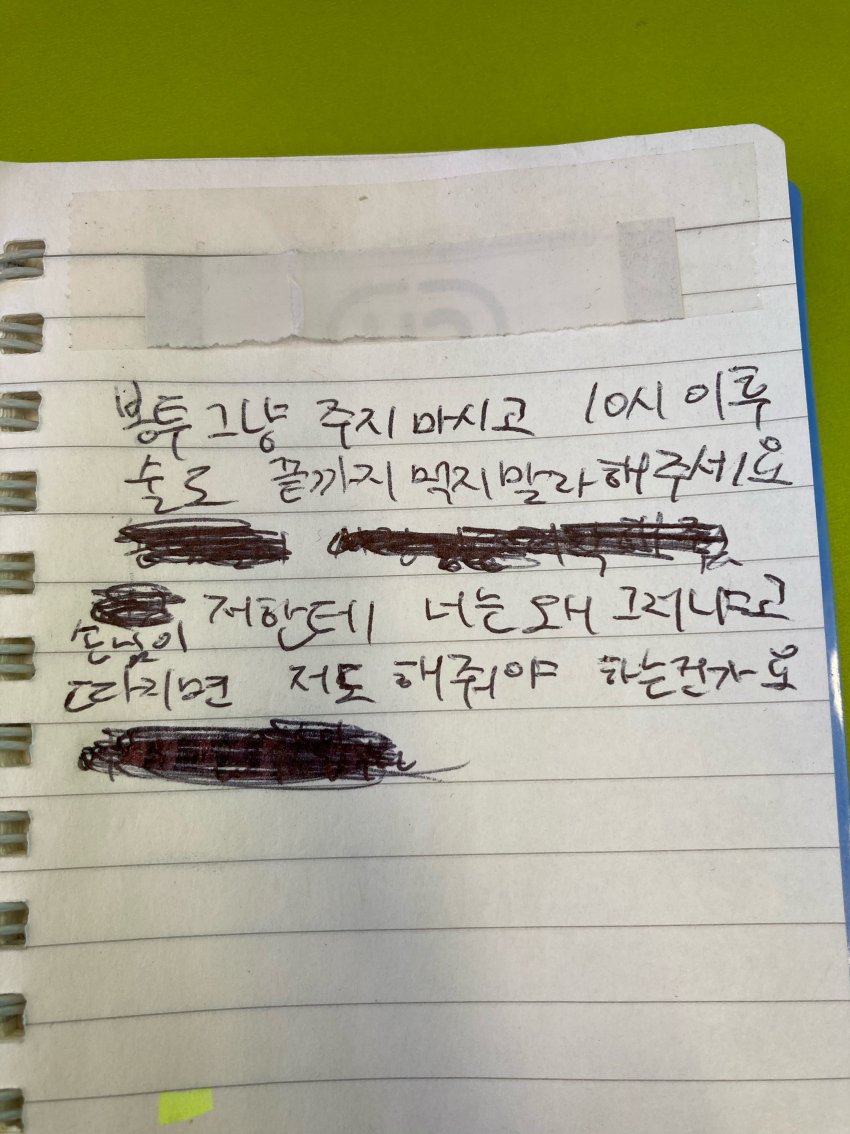 봉투 그냥 주지 마시고 10시 이후
술로 끝까지 먹지말라 해주세요
손님이 저한테 너는 왜 그러냐고
따지면 저도 해줘야 하는건가요